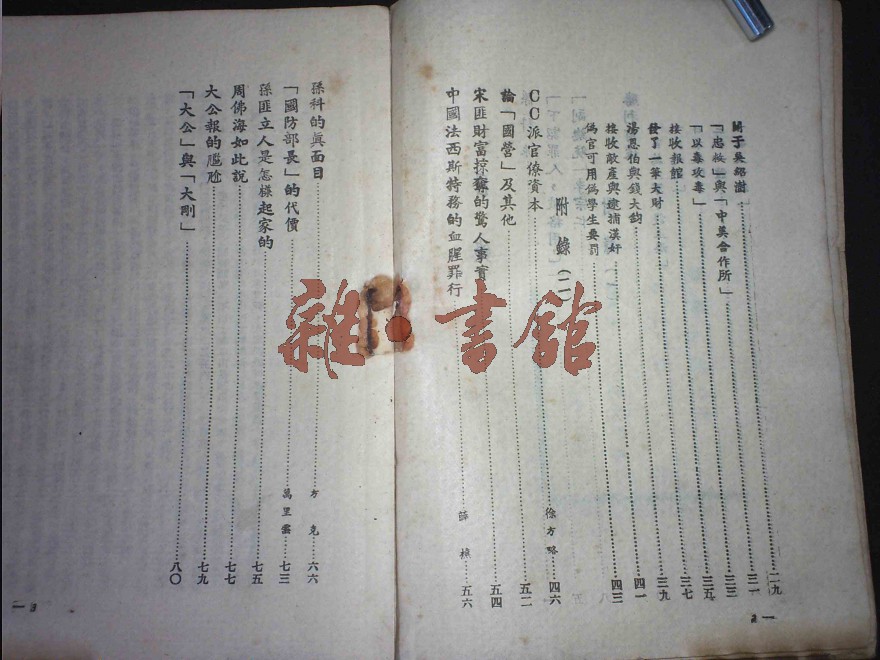 關于吳紹澍……二九
「忠救」與「中美合作所」……三一
「以毒攻毒」……三三
接收報館……三五
發了一筆大財……三七
湯恩伯與錢大鈞……三九
接收敵產與逮捕漢奸……四一
偽官可用偽學生要罰……四三
附錄(二)
CC派官僚資本……徐方略 四六
論「國營」及其他……五二
宋匪財富掠奪的驚人事實……五四
中國法西斯特務的血腥罪行……薛 五六
2
孫科的眞面目……方克 六六
「國防部長」的代價……萬里雲 七三
孫匪立人是怎樣起家的……七五
周佛海如此說……七七
大公報的尷尬……七九
「大公」與「大剛」……八〇
3
雜·書館